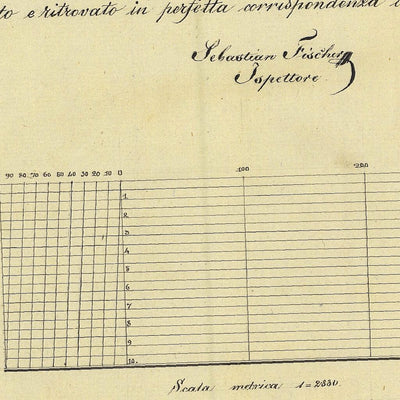 to e ritrovato in perfetta corrispondenza
Sebastian Fischer
Ispettore
90 80 70 60 50 40 30 20 10 0 100 200
1.
2.
3
4
5
6
7
8
9
10.
Scala metrica 1=2880